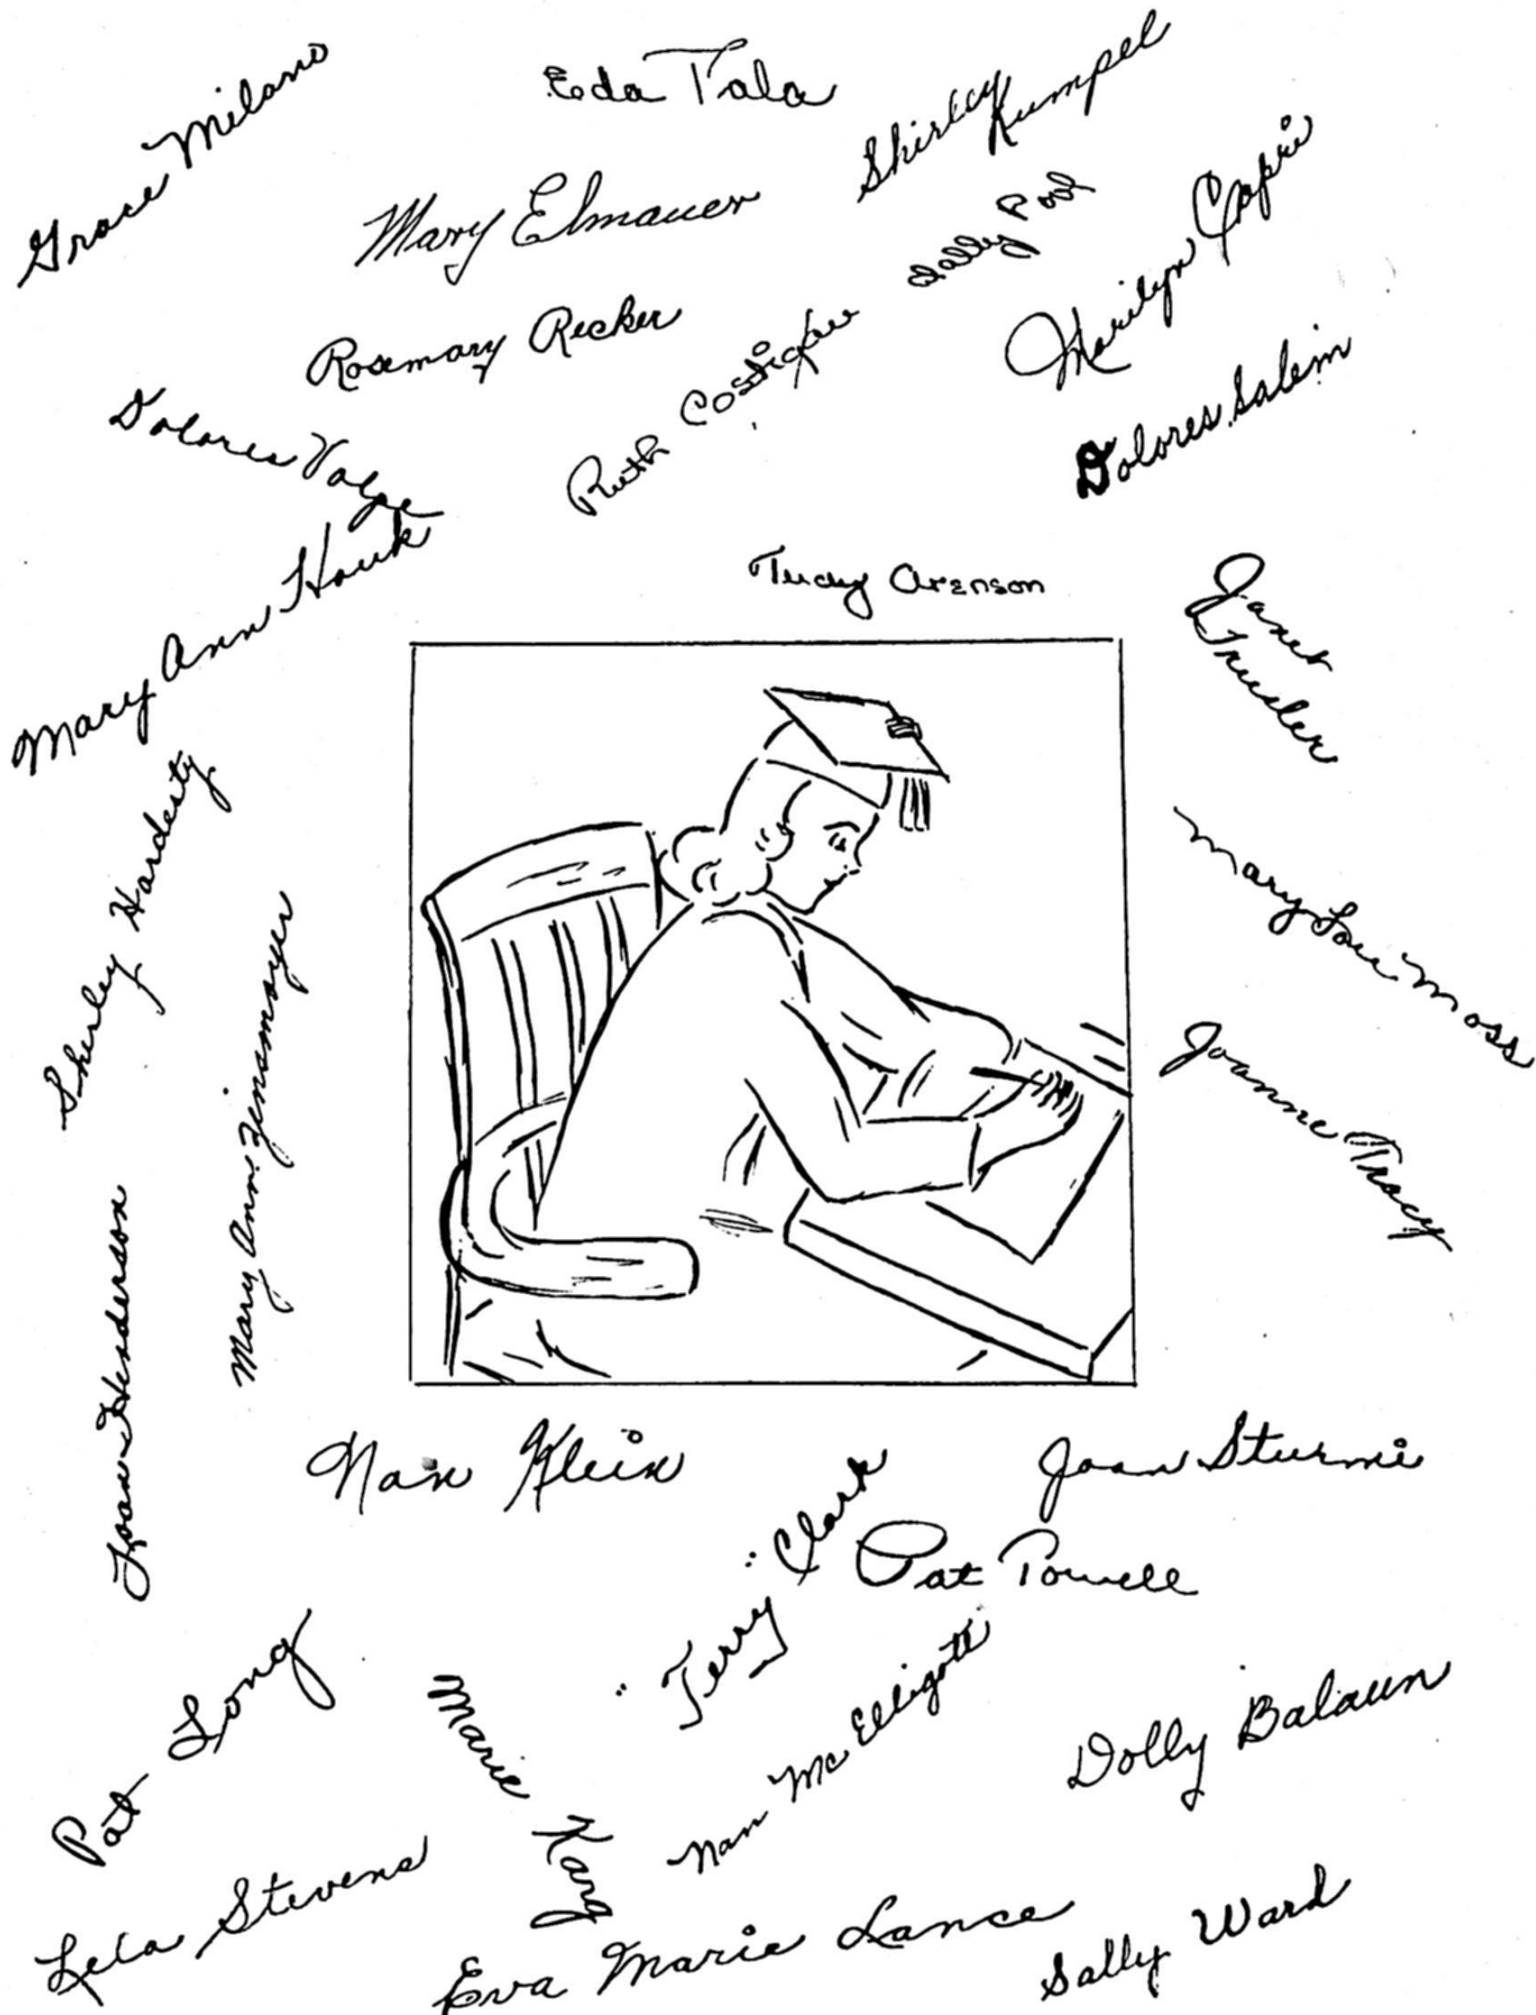 Grace Milano
Eda Tala
Shirley Kumpel
Mary Elmauer
Sally Pool
Marilyn Capri
Rosemary Recker
Ruth Costigan
Dolores Salem
Dolores Volpe
Mary Ann Houk
Trudy Arenson
Janet
Shirley Hardesty
Mary Lou Moss
Mary Ann Zinsmayer
Joanne Tracy
Joan Henderson
Nan Klein
Joan Sturmi
Terry Clark
Pat Powell
Pat Long
Marie Karg
Nan McElligott
Dolly Balaun
Lela Stevens
Eva Marie Lance
Sally Ward